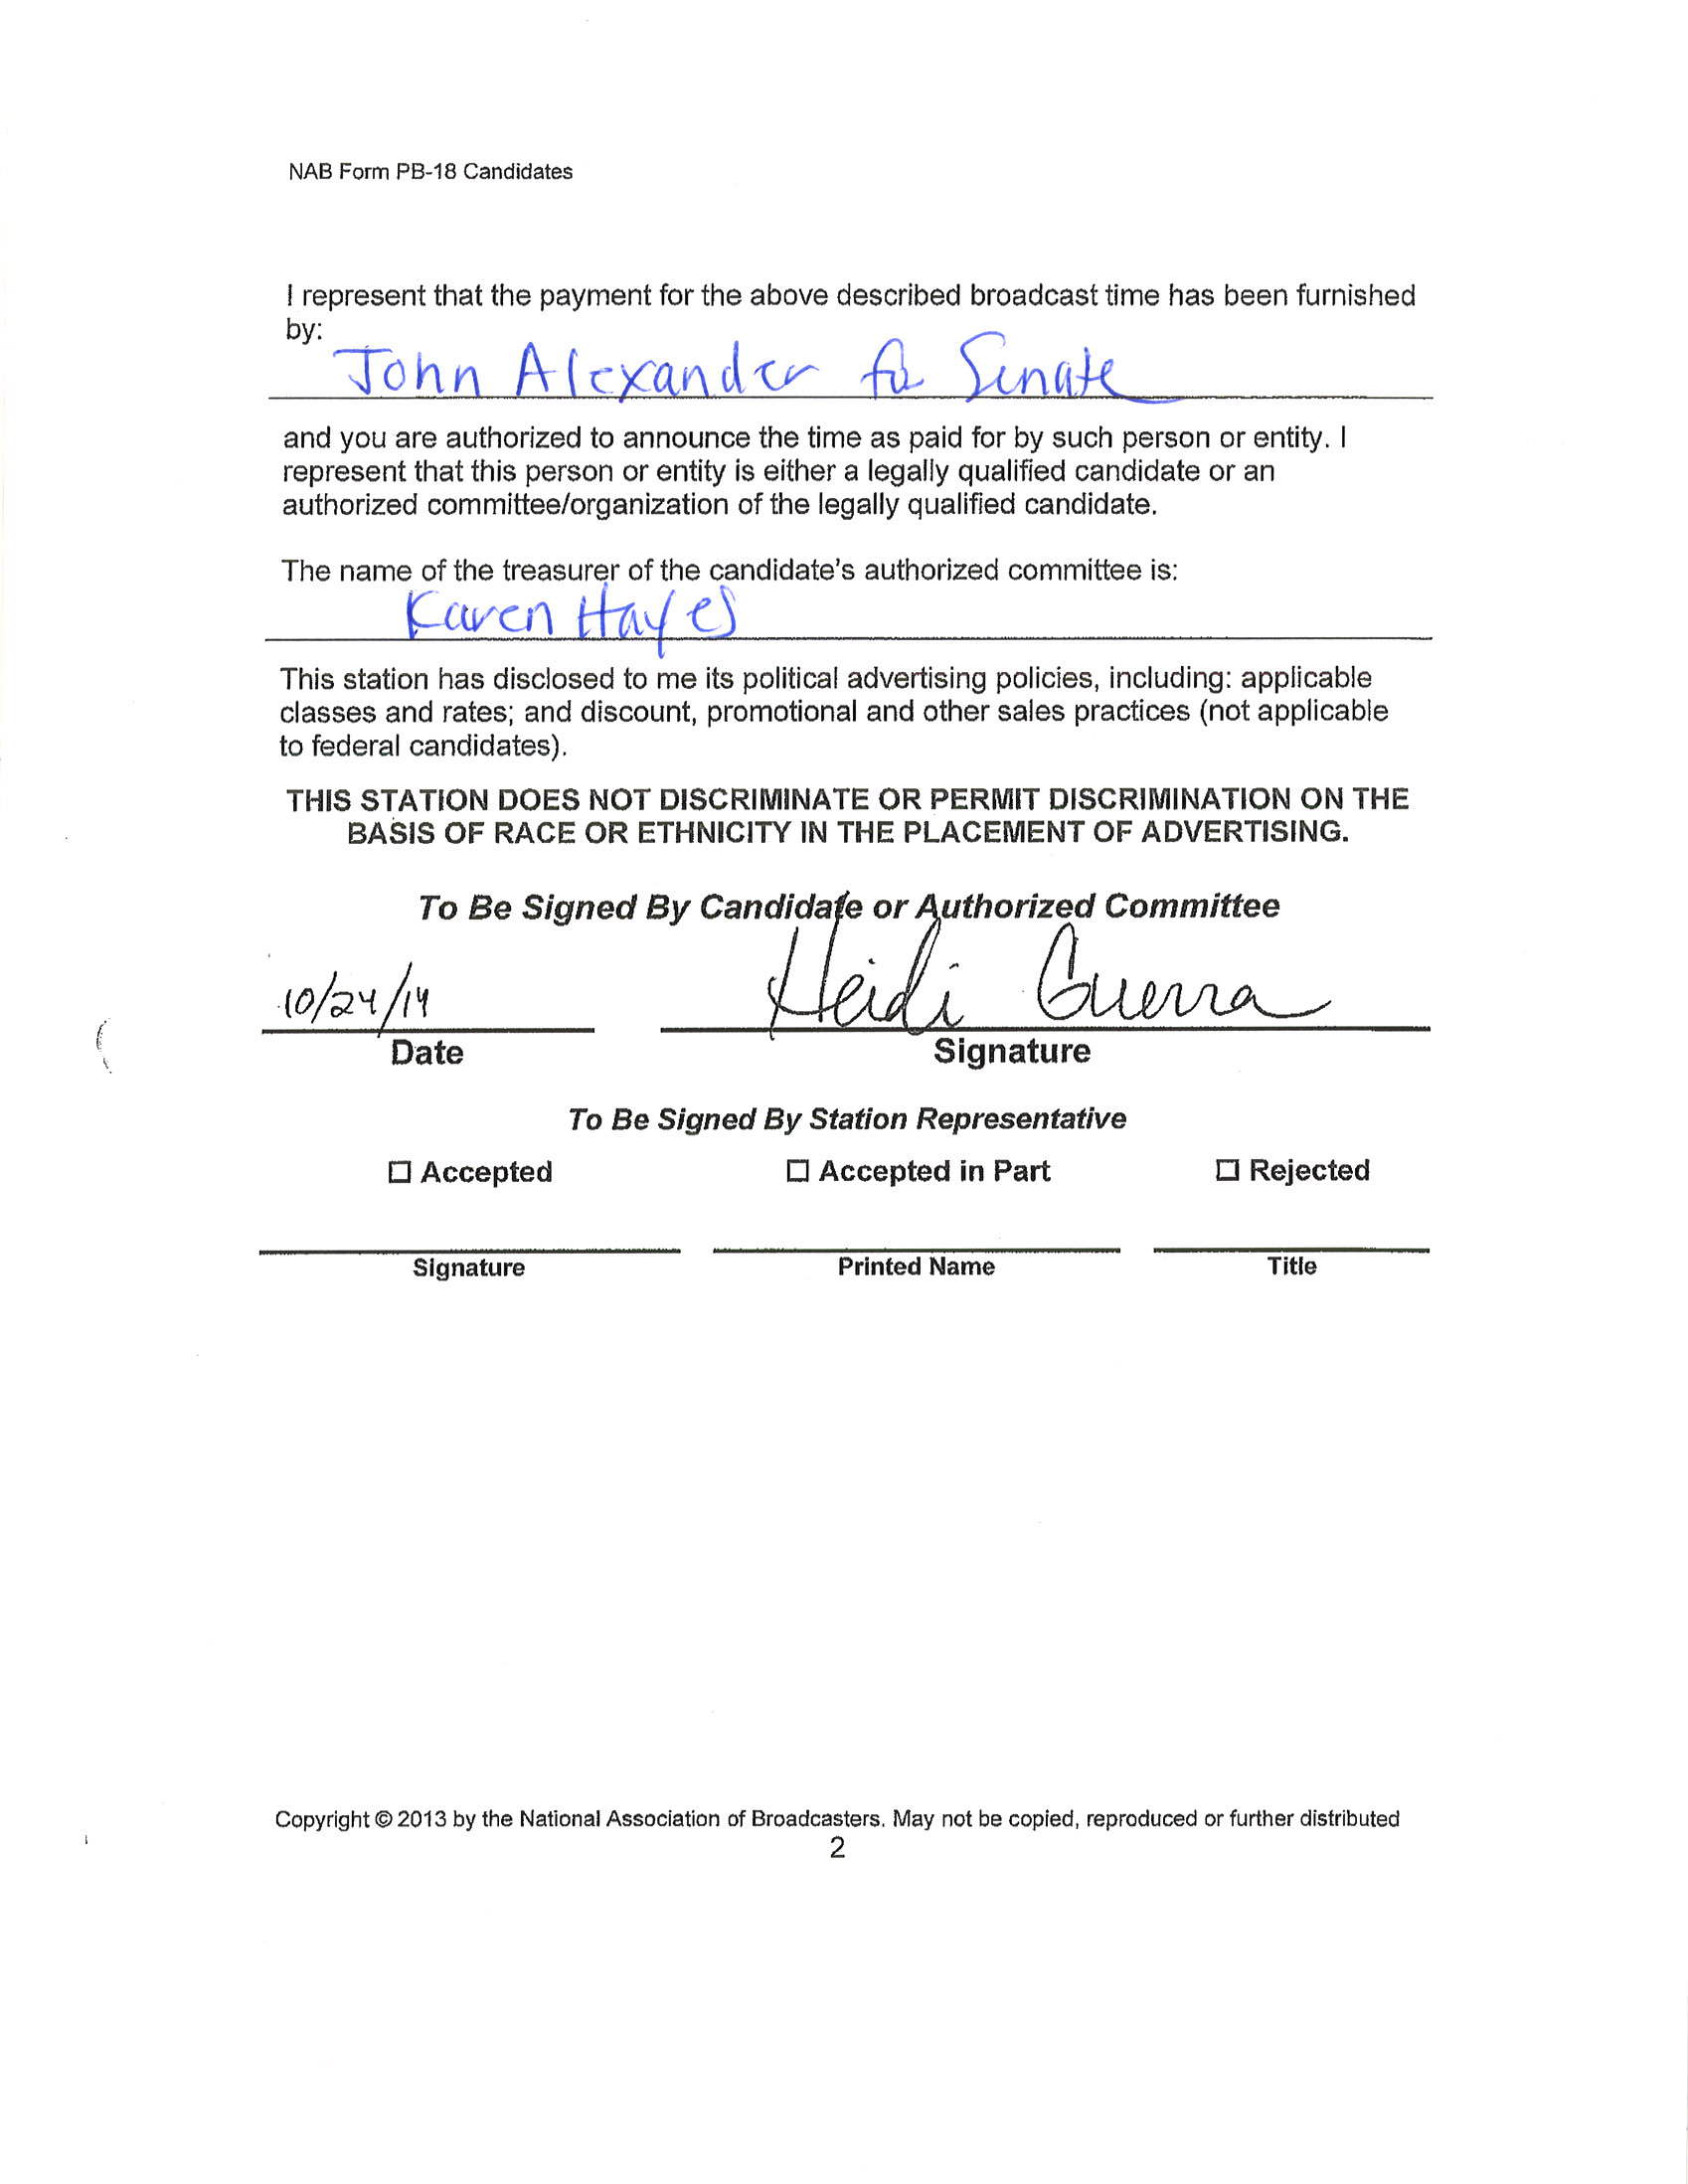 NAB Form PB-18 Candidates
I represent that the payment for the above described broadcast time has been furnished
by:
John Alexander for Senate
and you are authorized to announce the time as paid for by such person or entity. I
represent that this person or entity is either a legally qualified candidate or an
authorized committee/organization of the legally qualified candidate.
The name of the treasurer of the candidate's authorized committee is:
Karen Hayes
This station has disclosed to me its political advertising policies, including: applicable
classes and rates; and discount, promotional and other sales practices (not applicable
to federal candidates).
THIS STATION DOES NOT DISCRIMINATE OR PERMIT DISCRIMINATION ON THE
BASIS OF RACE OR ETHNICITY IN THE PLACEMENT OF ADVERTISING.
To Be Signed By Candidate or Authorized Committee
10/24/14 Heidi Guerra
Date Signature
To Be Signed By Station Representative
☐ Accepted ☐ Accepted in Part ☐ Rejected
Signature Printed Name Title
Copyright © 2013 by the National Association of Broadcasters. May not be copied, reproduced or further distributed
2